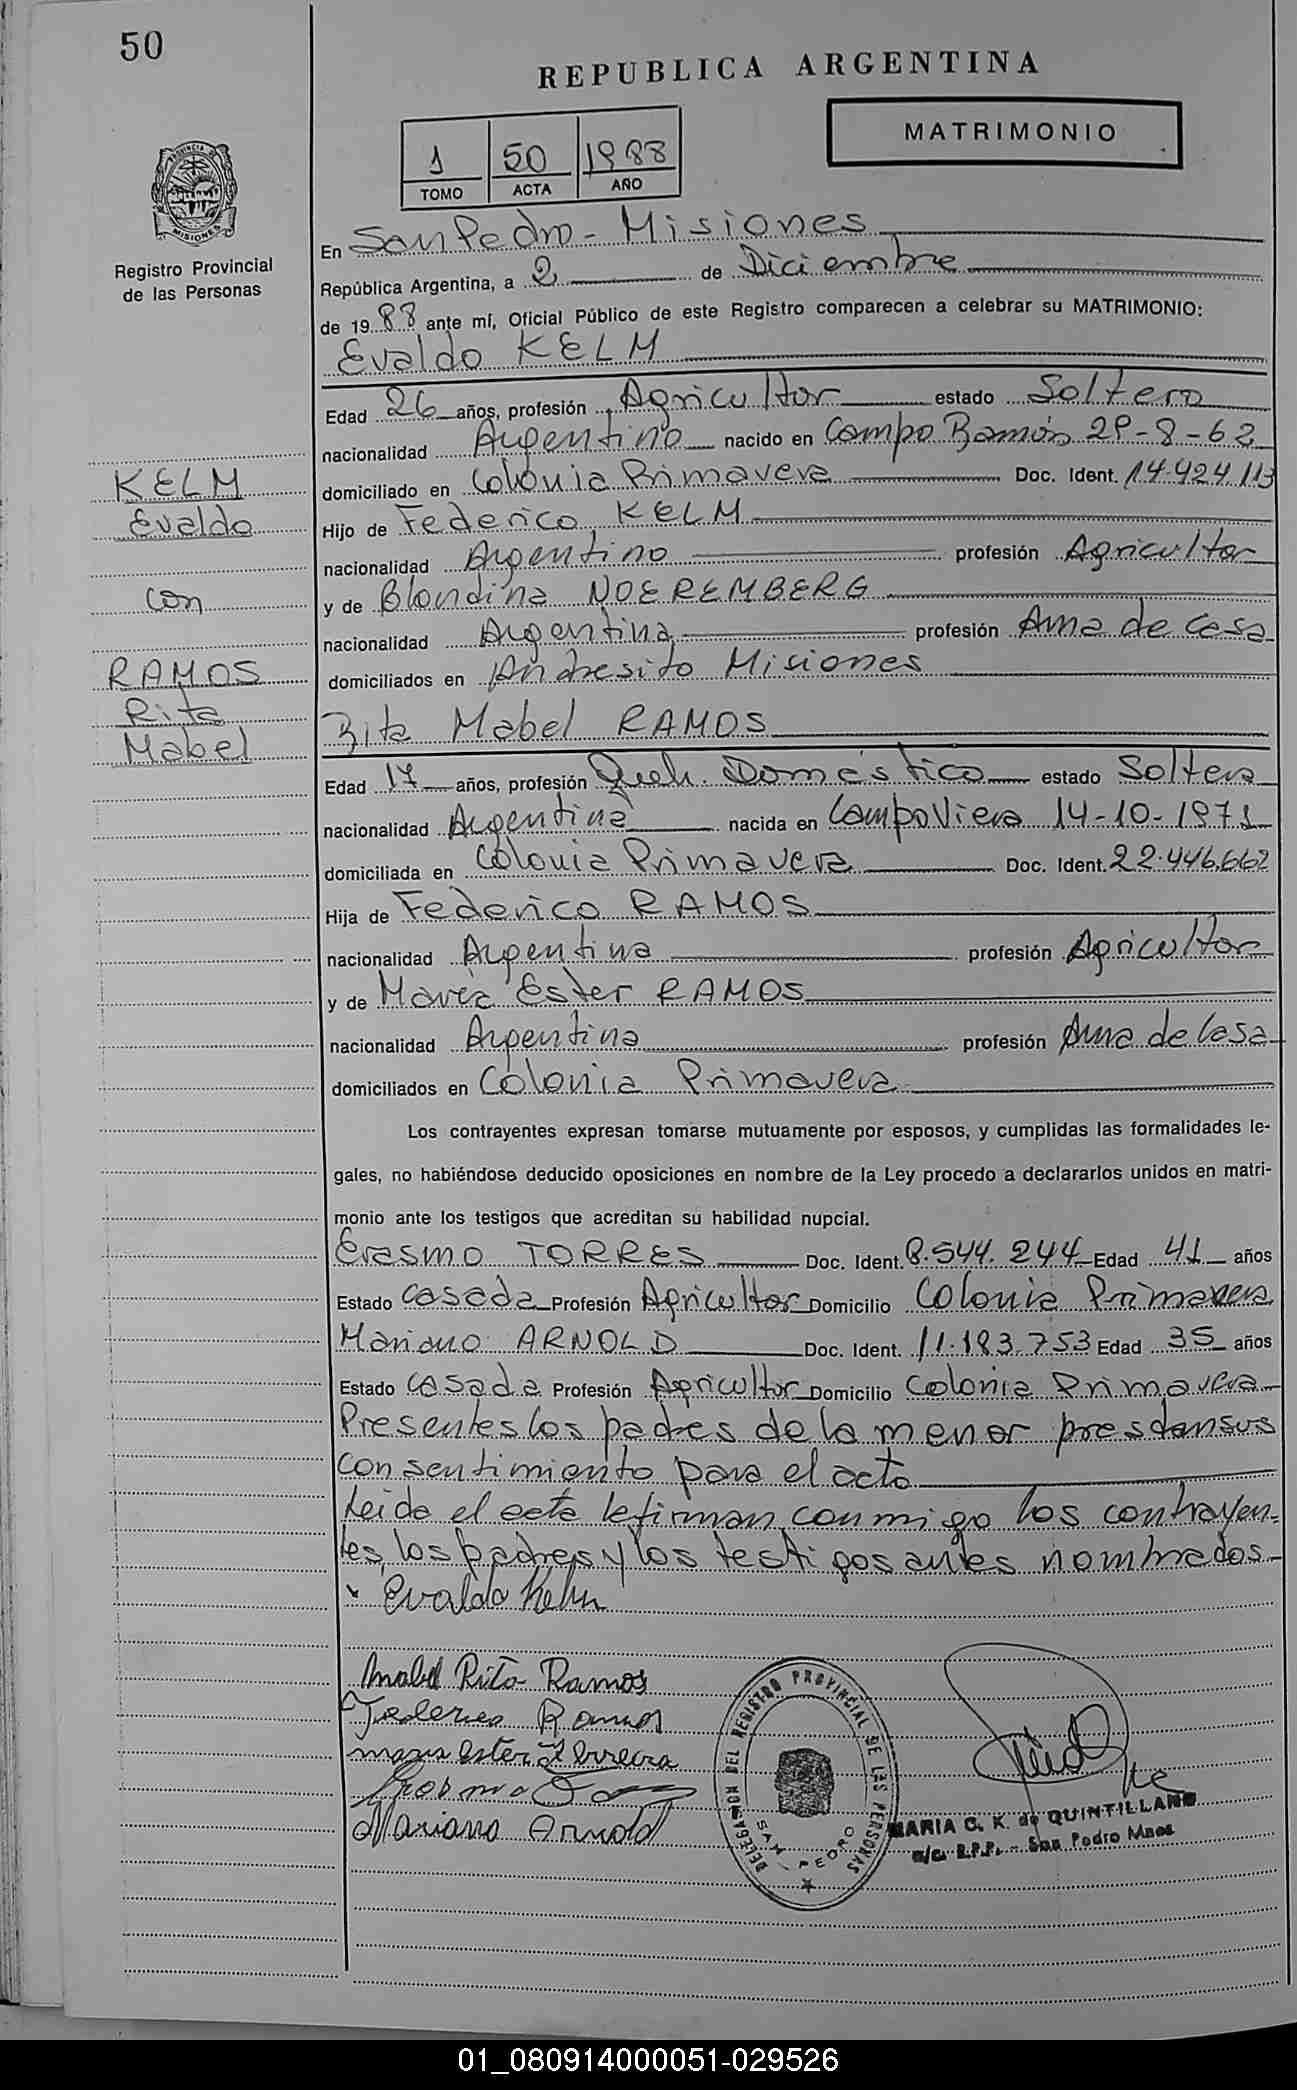 50
REPUBLICA ARGENTINA
MATRIMONIO
1 50 1988
TOMO ACTA AÑO
PROVINCIA DE MISIONES
Registro Provincial
de las Personas
En San Pedro - Misiones
República Argentina, a 2 de Diciembre
de 1988 ante mí, Oficial Público de este Registro comparecen a celebrar su MATRIMONIO:
Evaldo KELM
Edad 26 años, profesión Agricultor estado Soltero
nacionalidad Argentino nacido en Campo Ramón 29-8-62
domiciliado en Colonia Primavera Doc. Ident. 14.424.113
Hijo de Federico KELM
nacionalidad Argentino profesión Agricultor
y de Blondina NOEREMBERG
nacionalidad Argentina profesión Ama de casa
domiciliados en Andresito Misiones
KELM
Evaldo
con
RAMOS
Rita
Mabel
Rita Mabel RAMOS
Edad 17 años, profesión Queh. Doméstico estado Soltera
nacionalidad Argentina nacida en Campo Viera 14-10-1971
domiciliada en Colonia Primavera Doc. Ident. 22.446.662
Hija de Federico RAMOS
nacionalidad Argentina profesión Agricultor
y de María Ester RAMOS
nacionalidad Argentina profesión Ama de Casa
domiciliados en Colonia Primavera
Los contrayentes expresan tomarse mutuamente por esposos, y cumplidas las formalidades le-
gales, no habiéndose deducido oposiciones en nombre de la Ley procedo a declararlos unidos en matri-
monio ante los testigos que acreditan su habilidad nupcial.
Erasmo TORRES Doc. Ident. 8.544.244 Edad 41 años
Estado casada Profesión Agricultor Domicilio Colonia Primavera
Mariano ARNOLD Doc. Ident. 11.183.753 Edad 35 años
Estado casada Profesión Agricultor Domicilio Colonia Primavera
Presentes los padres de la menor prestan sus
consentimiento para el acto
Leida el acta la firman conmigo los contrayen-
tes, los padres y los testigos antes nombrados
x Evaldo Kelm
Mabel Rita Ramos
Federico Ramos
maria ester Ferreira
Mariano Arnold
DELEGACION DEL REGISTRO PROVINCIAL DE LAS PERSONAS
SAN PEDRO
MARIA C. K. de QUINTILLANO
a/c. R.P.P. - San Pedro Mnes
01_080914000051-029526